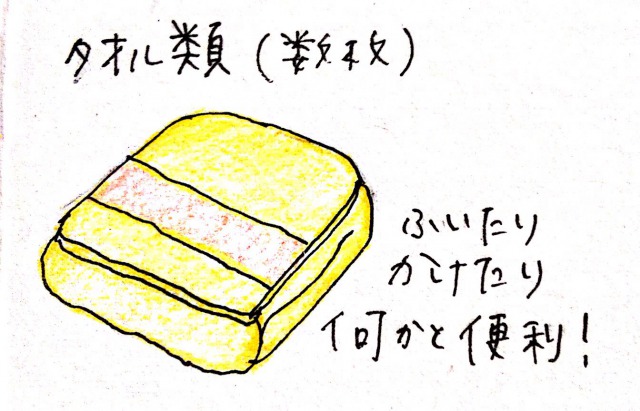 タオル類(数枚)
ふいたり
かけたり
何かと便利!